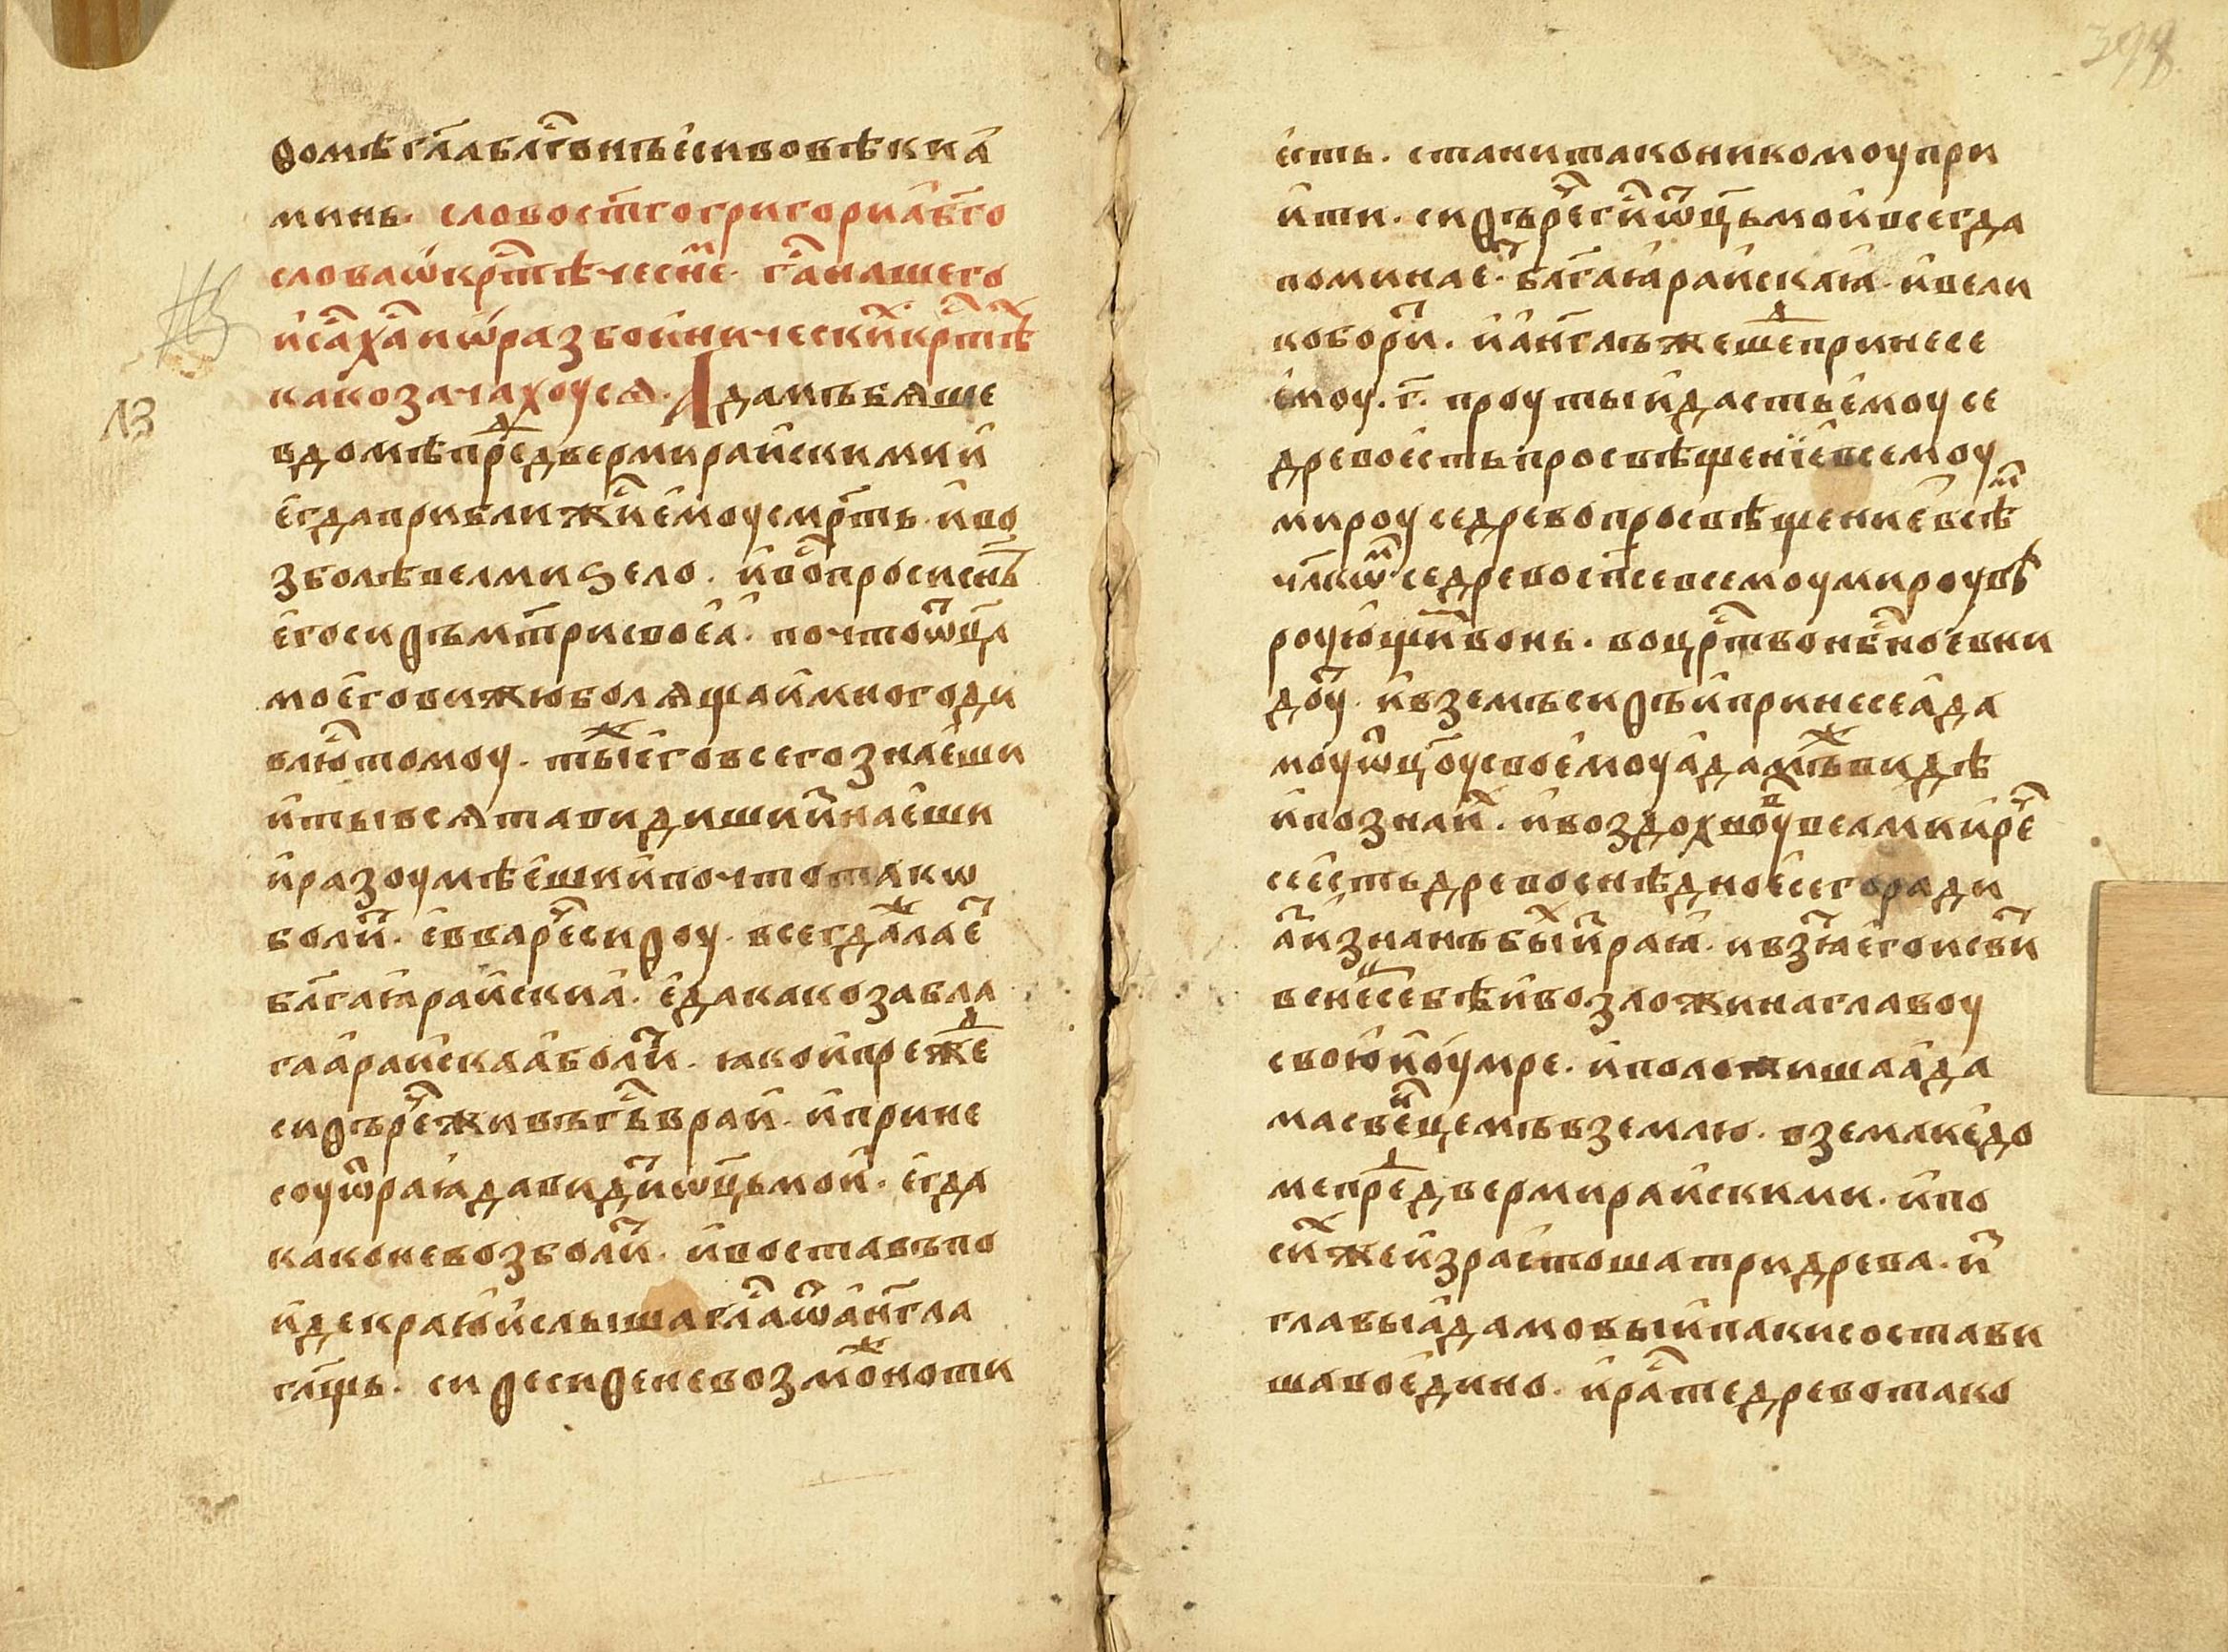 ѳомѣ гл҃а блг҃онъ е҆си вовѣки а҆
минь. слово ст҃го григорїа бг҃о
слова ѡ҆ крⷭ҇тѣ чеснѣⷨ. гⷭ҇а нашего
и҆с҃а хⷭ҇а и ѡ҆ разбойническиⷯ крⷭ҇тѣⷯ
како зачахоуся. Адамъ бяше
вдомѣ преⷣ дверми райскими и҆
е҆гда приближиⷭ҇ е҆моу смрⷭ҇ть. и҆ во
зболѣ велми ѕело. и҆ воⷭ҇проси сн҃ъ
е҆го сиѳъ мт҃ри своеѧ҆. почто ѿц҃а
моего вижю боляща и҆ много ди
влюⷭ҇ томоу. тыⷤ е҆го всего знаеши
и҆ ты вся та видиши и҆ знаеши
и҆ разоумѣеши и҆ почто такѡ
болиⷮ. е҆вва реⷱ҇ сиѳоу. всегдаⷤ алаеⷮ
бл҃гаꙗ райскиа. е҆да како забла
гаа райскаа болиⷮ. ꙗко и҆ преⷤⷣе
сиѳъ реⷱ҇ живъ гⷭ҇ь в рай. и҆ прине
соу ѿ раꙗ да видиⷮ ѿц҃ь мой. е҆гда
како не возболиⷮ. и҆ воставъ по
и҆де к раю и҆ слыша глⷭ҇а ѿ а҆нг҃ла
гл҃щь. сиѳе сиѳе невозмоⷤно ти
е҆сть. ста ни тако никомоу при
и҆ти. сиѳъ реⷱ҇ гⷭ҇и ѿц҃ь мой всегда
поминаеⷮ. бл҃гаꙗ райскаꙗ. и҆ вели
ко бориⷮ. и҆ а҆нг҃лъ же шеⷣ принесе
е҆моу. г҃. проуты и҆ дасть е҆моу се
древо е҆сть просвѣщенїе всемоу
мироу се древо просвѣщение всѣⷨ
чл҃кѡⷨ се древо сп҃се всемоу мироу вѣ
роующиⷨ вонь. во црⷭ҇тво нбⷭ҇ное вни
доуⷮ. и҆ вземъ сиѳъ и҆ принесе а҆да
моу ѿц҃оу своемоу а҆дамъⷤ видѣ
и҆ позна иⷯ. и҆ воздохноувъ велми и҆ реⷱ҇
се е҆сть древо снѣдное сего ради
а҆ꙁ и҆знанъ быⷯ иꙁ раꙗ. и҆ вꙁѧⷮ е҆го и сви
венеⷰ себѣ и҆ возложи на главоу
свою и҆ оумре. и҆ положиша а҆да
ма с венⷰцемъ в землю. в земли едо
ме преⷣ дверми райскими. и҆ по
сиⷯ же и҆зрастоша три древа. иꙁ
главы а҆дамовы и҆ паки состави
ша во е҆дино. и҆ расте древо тако